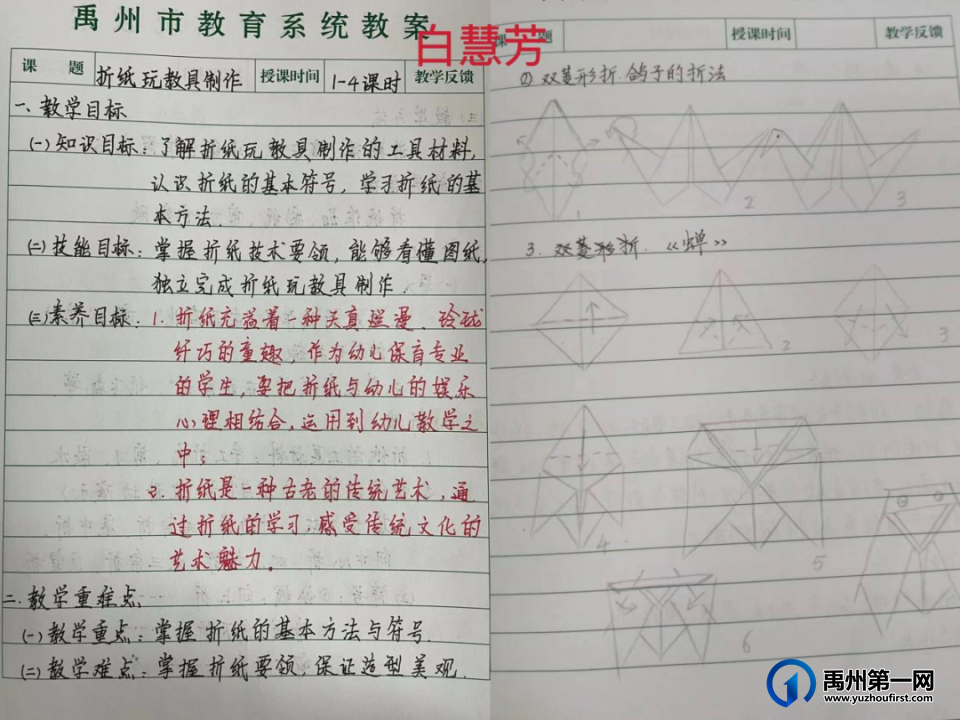 禹州市教育系统教案
白慧芳
课 题 折纸玩教具制作 授课时间 1-4课时 教学反馈
一、教学目标
(一)知识目标：了解折纸玩教具制作的工具材料,
认识折纸的基本符号，学习折纸的基
本方法.
(二)技能目标：掌握折纸技术要领，能够看懂图纸,
独立完成折纸玩教具制作.
(三)素养目标：1. 折纸充溢着一种天真烂漫、玲珑
纤巧的童趣，作为幼儿保育专业
的学生，要把折纸与幼儿的娱乐
心理相结合，运用到幼儿教学之
中；
2. 折纸是一种古老的传统艺术，通
过折纸的学习，感受传统文化的
艺术魅力。
二.教学重难点
(一)教学重点：掌握折纸的基本方法与符号.
(二)教学难点：掌握折纸要领，保证造型美观.
课 题 授课时间 教学反馈
② 双菱形折.鸽子的折法
1 2 3
3. 双菱形折.《蝉》
2 3
4 5
6
禹州第一网
www.yuzhoufirst.com